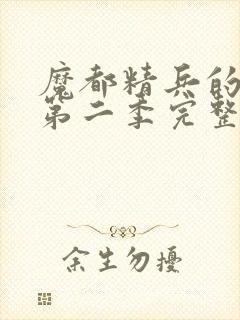 魔都精兵的
第二季完整
余生勿擾